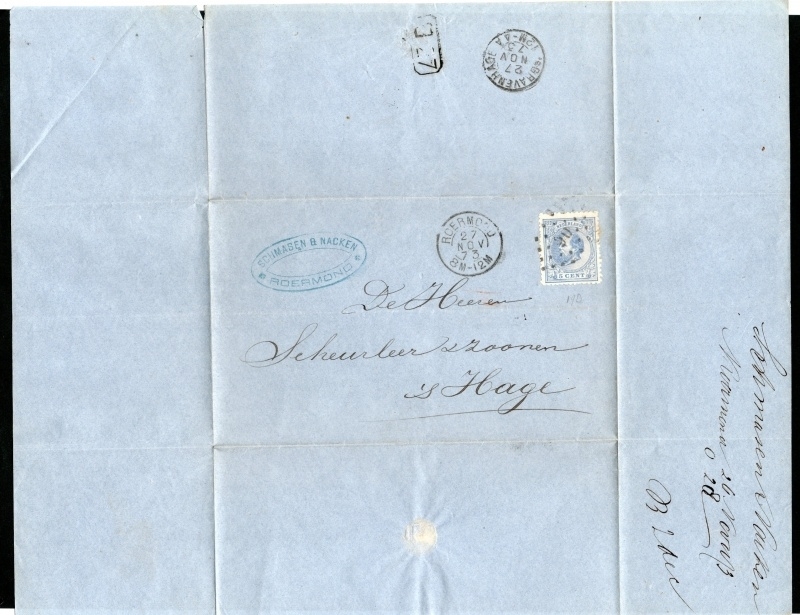 's GRAVENHAGE
27
NOV
73
12M-4A
SCHMASEN & NACKEN
ROERMOND
ROERMOND
27
NOV
73
8M-12M
5 CENT
De Heeren
Scheurleer & Zoonen
's Hage
Schmasen & Nacken
Roermond 26 Nov